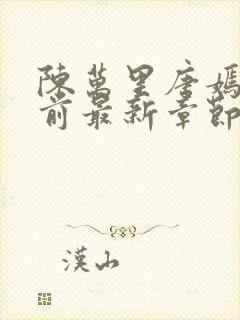 陳萬里唐嫣
前最新章節
漢山